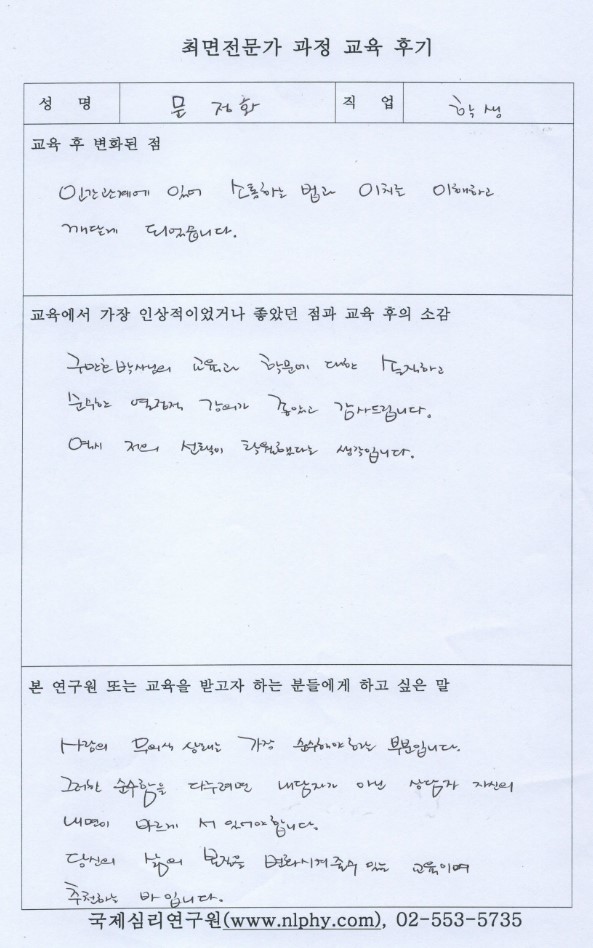 최면전문가 과정 교육 후기
성 명 문정화 직 업 학생
교육 후 변화된 점
인간관계에 있어 소통하는 법과 이치를 이해하고
깨닫게 되었습니다.
교육에서 가장 인상적이었거나 좋았던 점과 교육 후의 소감
구만호박사님의 교육과 학문에 대한 솔직하고
순수한 열정적 강의가 좋았고 감사드립니다.
역시 저의 선택이 탁월했다는 생각입니다.
본 연구원 또는 교육을 받고자 하는 분들에게 하고 싶은 말
사람의 무의식 상태는 가장 순수해야하는 부분입니다.
그러한 순수함을 다루려면 내담자가 아닌 상담자 자신의
내면이 바르게 서 있어야합니다.
당신의 삶의 본질을 변화시켜줄수 있는 교육이며
추천하는 바 입니다.
국제심리연구원(www.nlphy.com), 02-553-5735